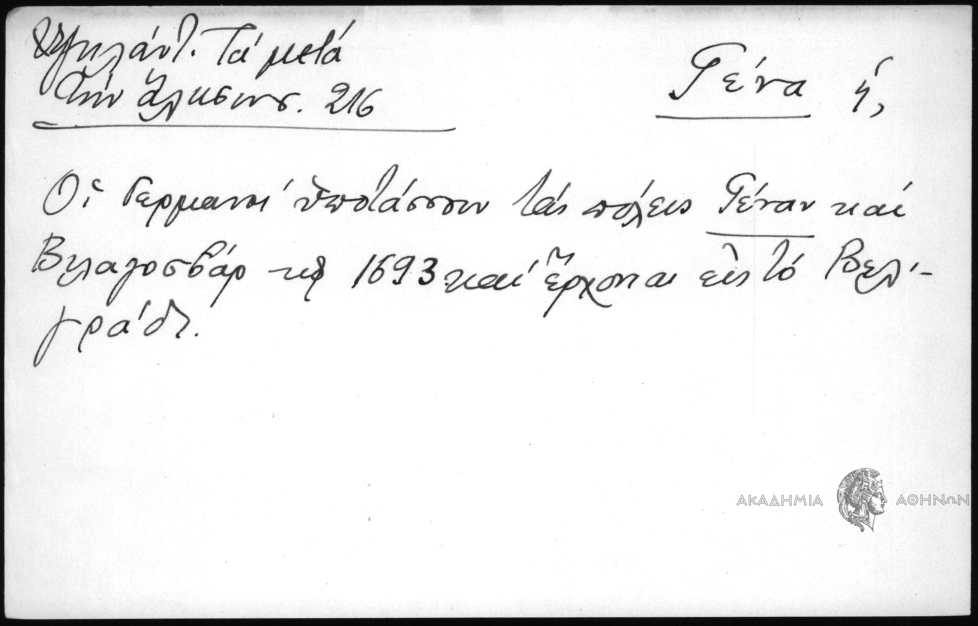 Ὑψηλάντ. Τά μετά
τήν ἅλωσιν. 216
Γένα ἡ,
Οἱ Γερμανοί ὑποτάσσουν τάς πόλεις Γέναν καί
Βιλαγοσβάρ τῷ 1693 καί ἔρχονται εἰς τό Βελι-
γράδι.
ΑΚΑΔΗΜΙΑ ΑΘΗΝΩΝ